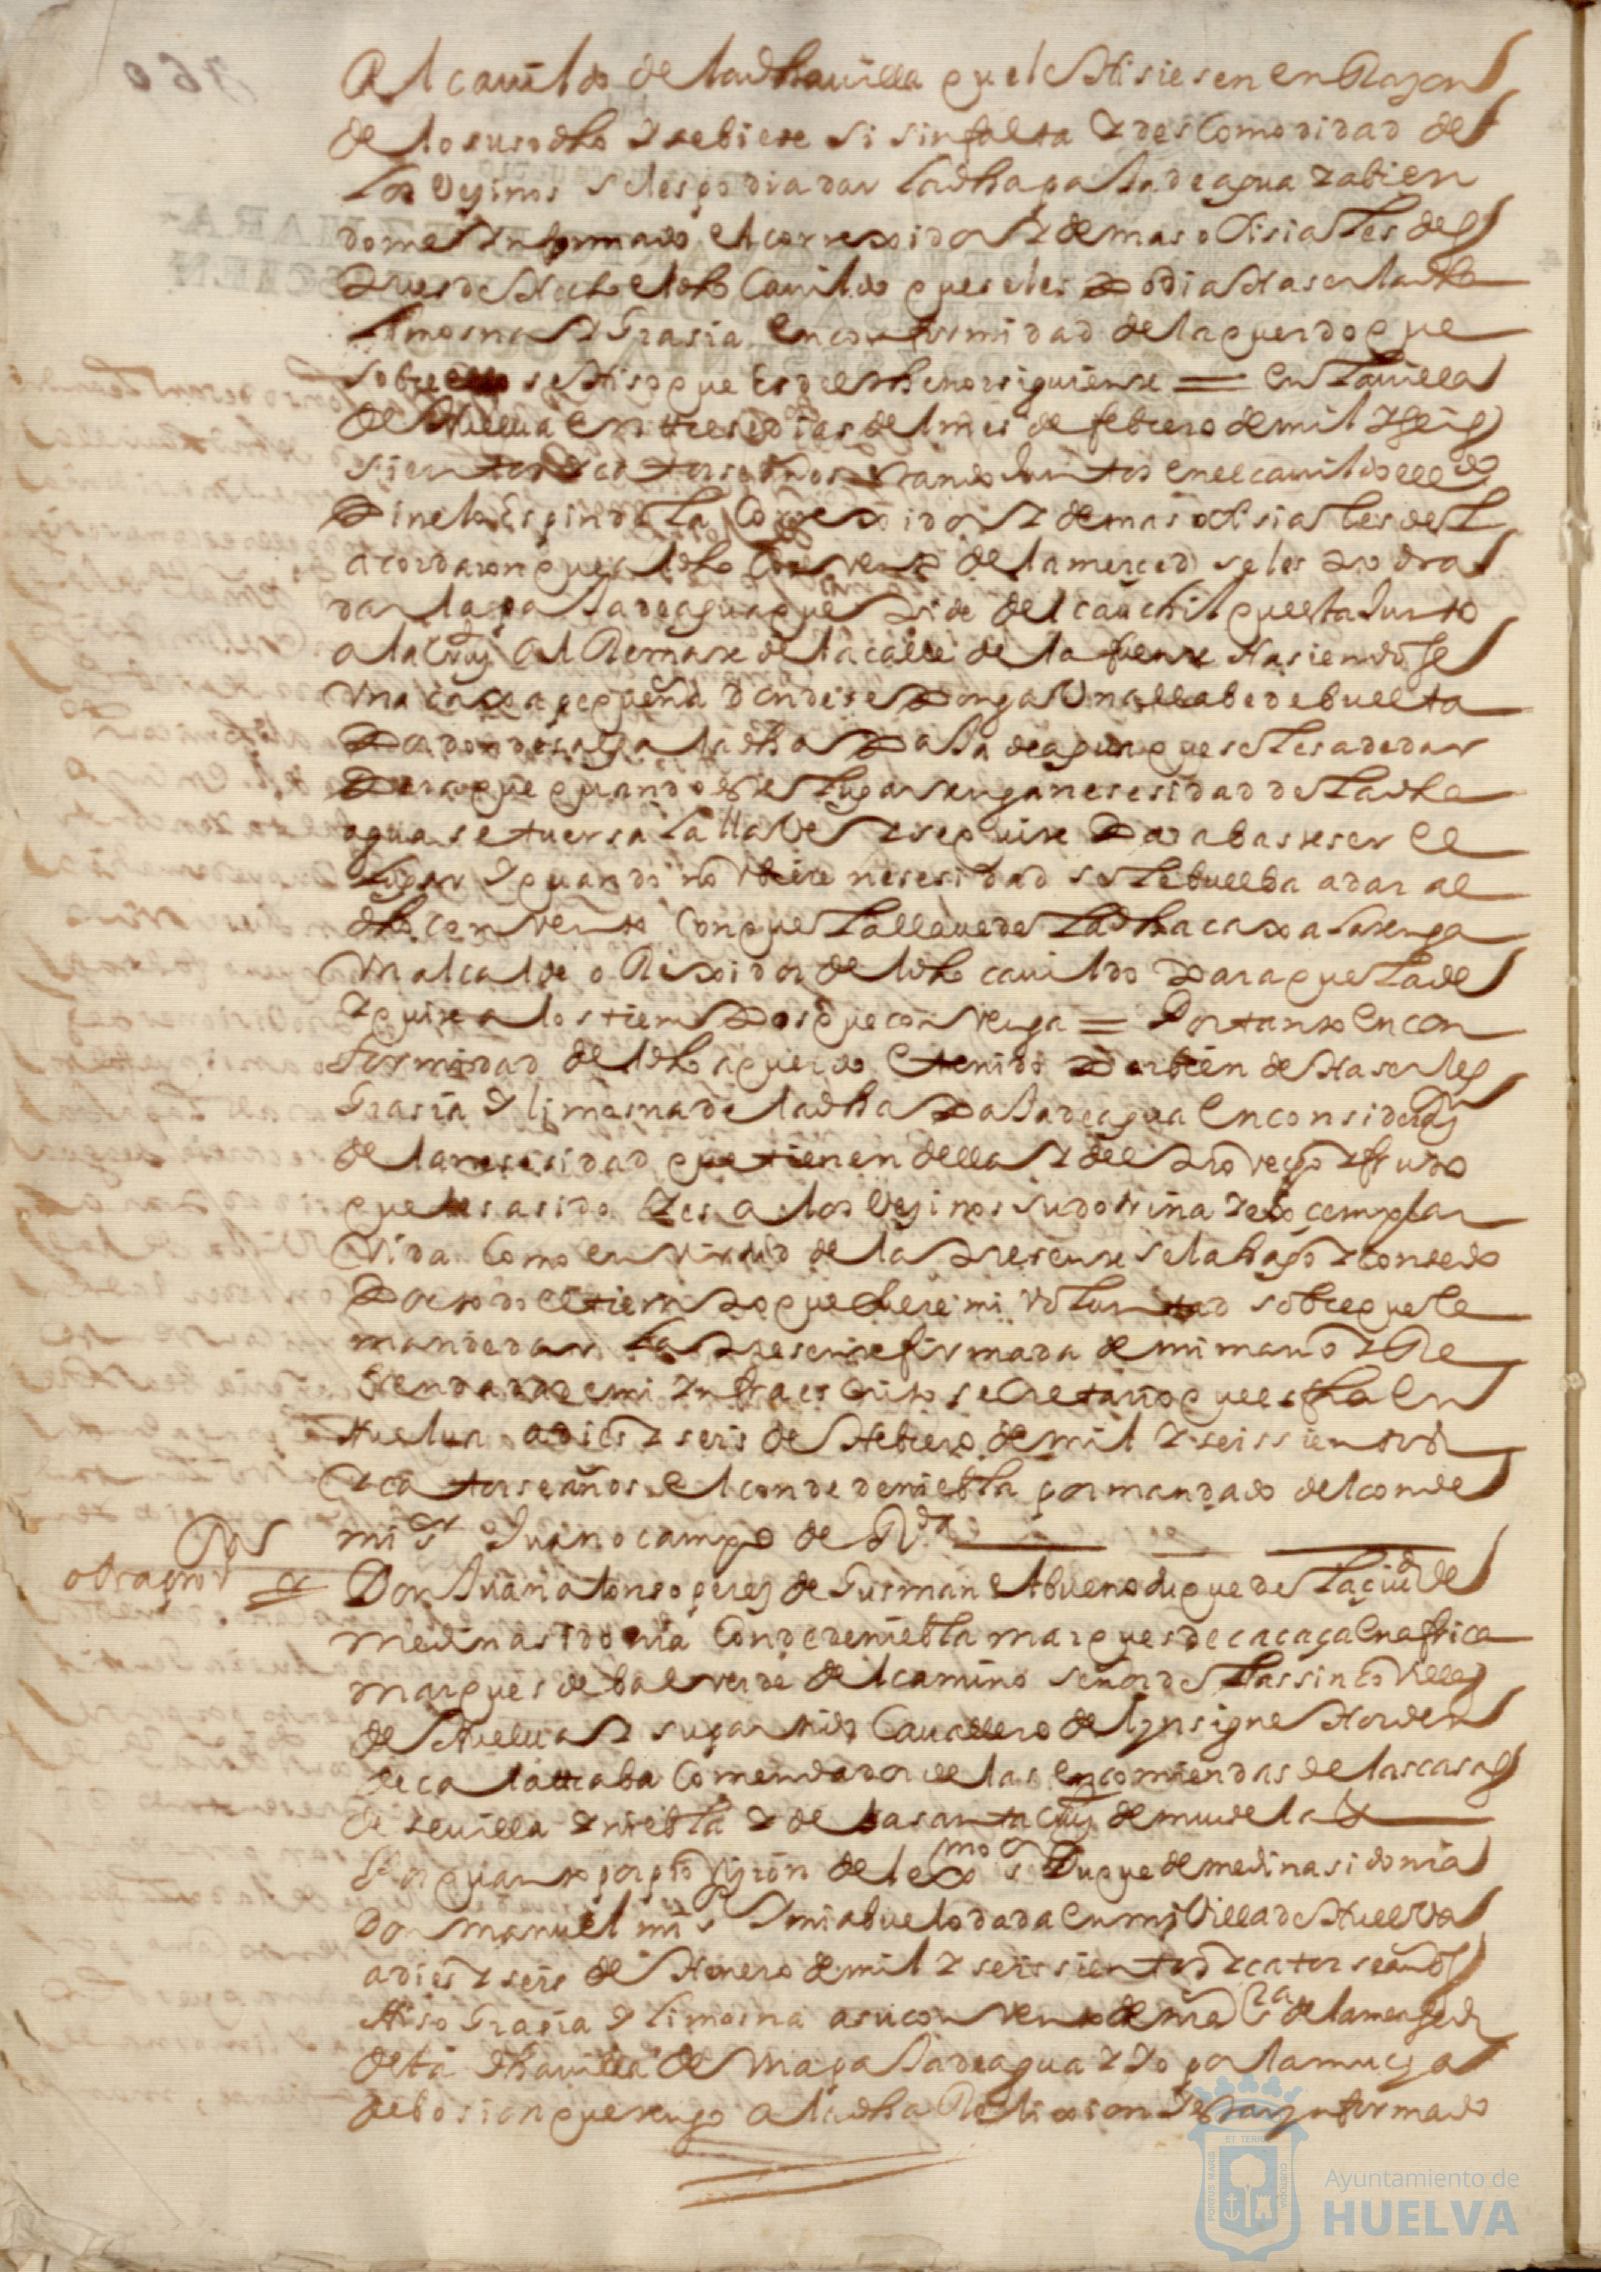 Al cauildo de la dha uilla que le Hisiesen en Razon
de lo susodho y se biese si sin falta y descomodidad de
los Vezinos se les podria dar la dha paja de agua y abien
dome ynformado el corregidor y demas ofisiales de
pues de Hecho el dho Cauildo que se les podia Haser la dha
limosna y Grasia en conformidad del aquerdo que
sobre ello se Hiso que es del thenor siguiente = en la uilla
de Huelua en trese dias del mes de febrero de mil y seis
sientos y catorse años estando Juntos en el cauildo el ldo
Pinelo Espindola Corregidor y demas ofisiales del
acordaron que al dho Convento de la merced se les podra
dar la paja de agua que pide del cauchil questa Junto
a la Cruz al Remate de la calle de la fuente Hasiendose
Vna caxa pequeña donde se ponga Vna llabe de buelta
por donde salga la dha paja de agua que se les a de dar
para que quando este lugar tenga nesesidad de la dha
agua se tuersa la llave y se quite para abasteser el
lugar y quando no vbiere nesesidad se le buelba a dar al
dho convento con que la llaue de la dha caxa la tenga
Vn alcalde o Rexidor del dho cauildo para que la de
y quite a los tiempos que convenga = Por tanto en con
formidad del dho aquerdo e tenido por bien de Haserles
Grasia y limosna de la dha paja de agua en considerasion
de la nesesidad que tienen della y del provecho y fruto
que les a sido y es a los Vezinos su dotrina y exemplar
Vida Como en virtud de la presente se la hago y consedo
Por todo el tiempo que fuere mi voluntad sobre que le
mande dar la presente firmada de mi mano y Re
frendada de mi ynfraescrito secretario ques fha en
Huelua a dies y seis de Hebrero de mil y seissientos
y catorse años el conde de niebla por mandado del conde
mi sr Juan ocampo de Rda
otra provon
Don Juan alonso perez de Gusman el bueno duque de la çiud de
medina sidonia conde de niebla marques de caçaça en africa
marques de balverde del camino señor de las sinco villas
de Huelua y su partido Cauallero del ynsigne Horden
de calatraba Comendador de las encomiendas de las casas
de seuilla y niebla y de la santa cruz de mudela &
Por quanto por prouision del exmo sr Duque de medina sidonia
Don manuel mi sr y mi abuelo dada en mi Villa de Huelva
a dies y seis de Henero de mil y seissientos y catorse años
Hiso Grasia y limosna a su convento de nra sra de la merced
de la dha uilla de vna paja de agua y yo por la mucha
debosion que tengo a la dha Relixion y estar ynformado
Ayuntamiento de
HUELVA